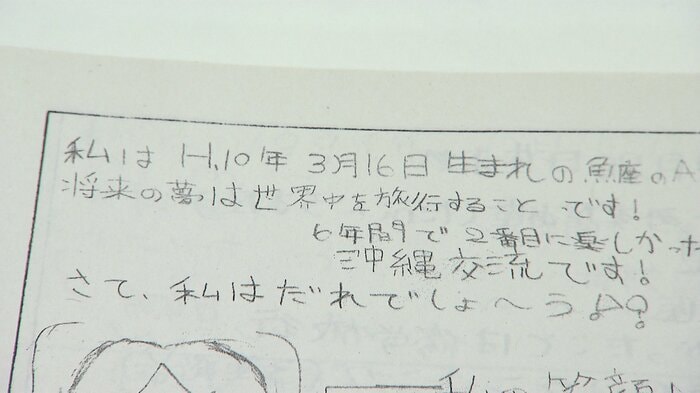 私は H,10年 3月16日 生まれの魚座のA
将来の夢は世界中を旅行すること です!
6年間で2番目に楽しかった
沖縄交流です!
さて、私はだれでしょ〜う!?
私の笑顔